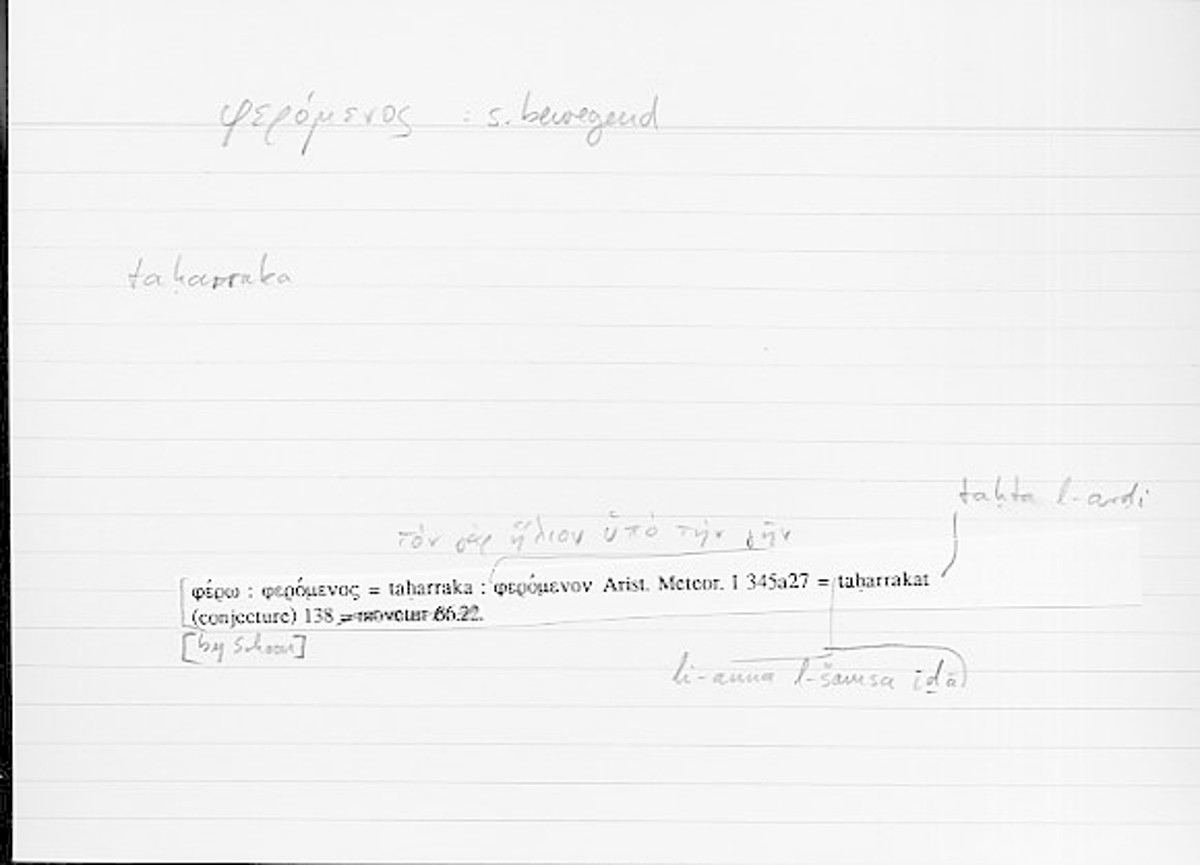 φερόμενος : s. bewegend
taḥarraka
taḥta l-arḍi
τὸν γὰρ ἥλιον ὑπὸ τὴν γῆν
φέρω : φερόμενος = taḥarraka : φερόμενον Arist. Meteor. I 345a27 = taḥarrakat
(conjecture) 138 = movetur 66.22.
[by Schoon]
li-anna l-šamsa iḏā